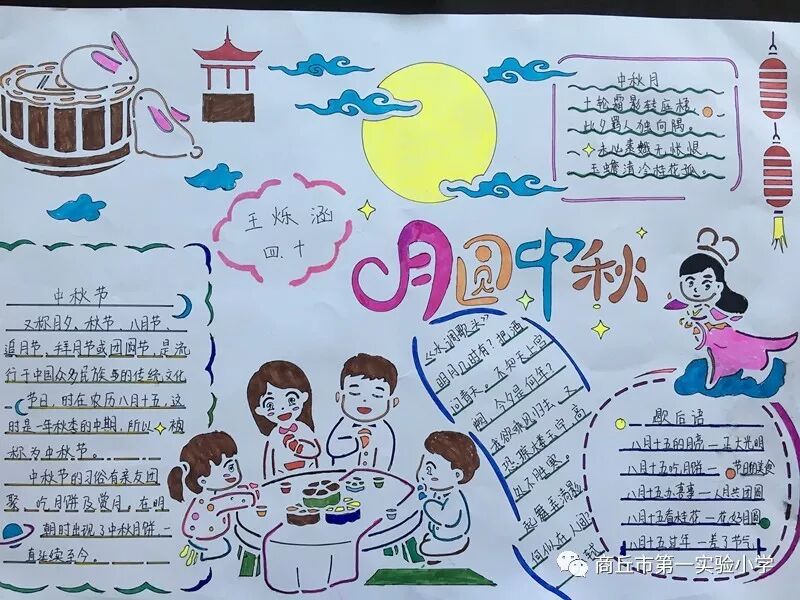 中秋月
十轮霜影转庭梧
此夕羁人独向隅。
未必素娥无怅恨
玉蟾清冷桂花孤。
王烁涵
四、十
月圆中秋
中秋节
又称月夕、秋节、八月节、
追月节、拜月节或团圆节，是流
行于中国众多民族的传统文化
节日，时在农历八月十五，这
时是一年秋季的中期，所以被
称为中秋节。
中秋节的习俗有亲友团
聚、吃月饼及赏月。在明
朝时出现了中秋月饼一
直延续至今。
《水调歌头》
明月几时有？把酒
问青天。不知天上宫
阙，今夕是何年？
我欲乘风归去，又
恐琼楼玉宇，高
处不胜寒。
起舞弄清影
何似在人间
歇后语
八月十五的月亮—正大光明
八月十五吃月饼—节日的美食
八月十五办喜事—人月共团圆
八月十五看桂花—花好月圆
八月十五过年—差了节气
商丘市第一实验小学